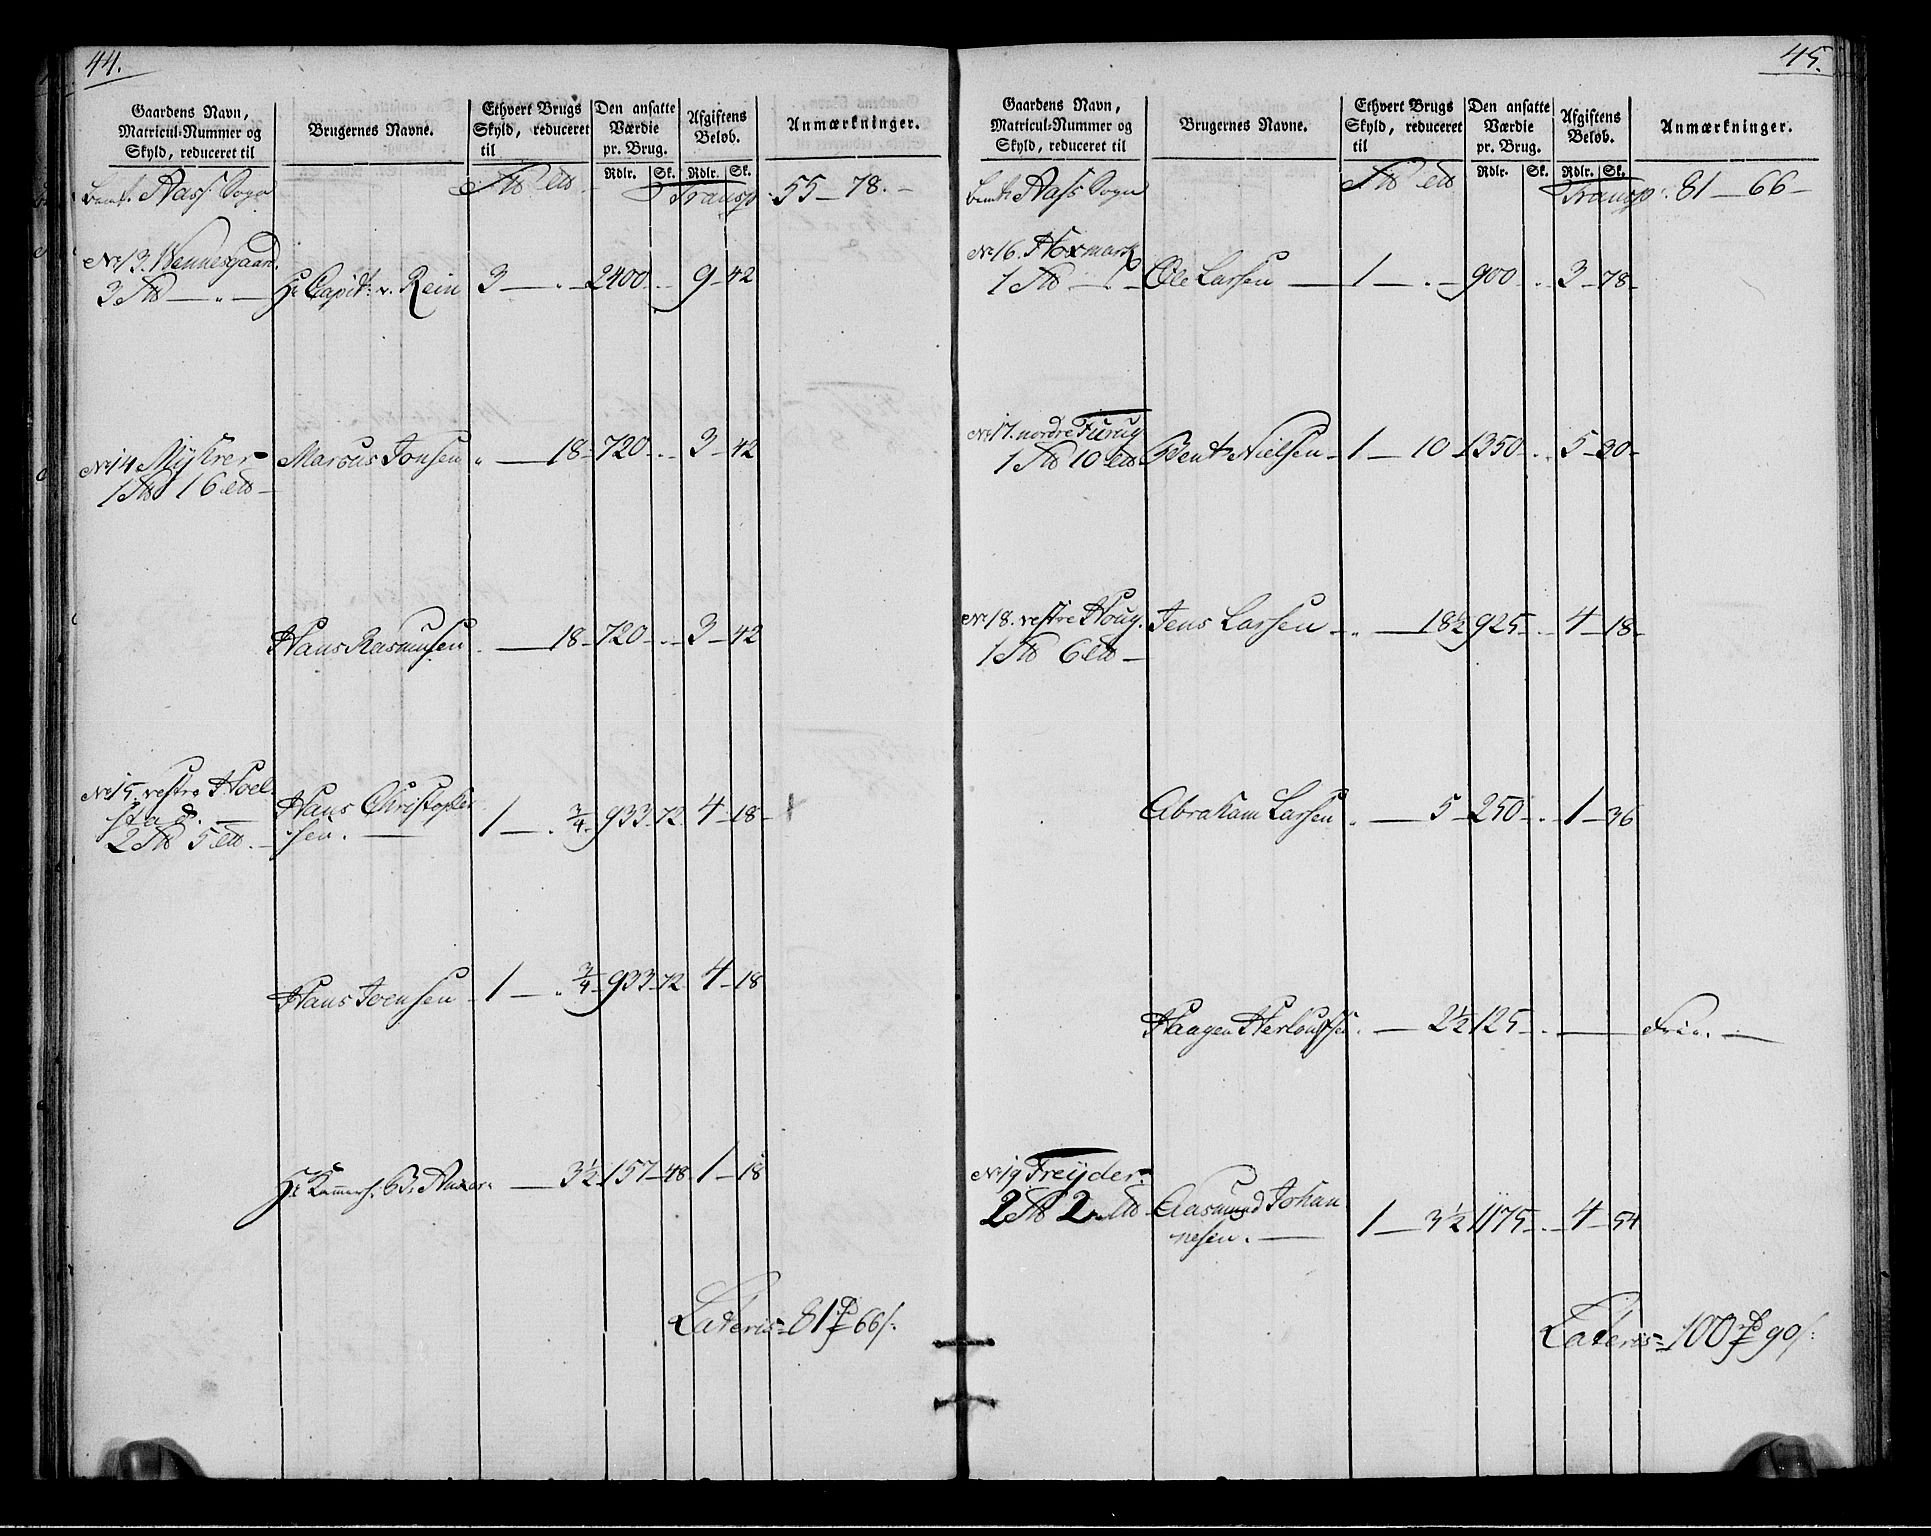 44.
Gaardens Navn, Matricul-Nummer og Skyld, reduceret til
Brugernes Navne.
Ethvert Brugs Skyld, reduceret til
Den ansatte Værdie pr. Brug.
Afgiftens Beløb.
Anmærkninger.
Rdlr. Sk. Rdlr. Sk.
Aass Sogn Transp: 55 - 78. -
No 13. Wennesgaard.
3 - " - Hr Capit: v. Rein 3 - . - 2400 - . - 9 - 42
No 14
1 16 - Marcus Jonsen " - 18 - 720 - . - 3 - 42
Hans Rasmusen . - 18 - 720 - . - 3 - 42
No 15. vestre Hoel-
stad. - Hans Christopher
2 5 - sen. - 1 - . 3/4 - 933 - 72 - 4 - 18 -
Hans Joensen - 1 - " 3/4 - 933 - 72 - 4 - 18
Hr Kammerh: B: Anker - 3 1/2 - 157 - 48 - 1 - 18
Lateris = 81 66 /:
45.
Gaardens Navn, Matricul-Nummer og Skyld, reduceret til
Brugernes Navne.
Ethvert Brugs Skyld, reduceret til
Den ansatte Værdie pr. Brug.
Afgiftens Beløb.
Anmærkninger.
Rdlr. Sk. Rdlr. Sk.
Aass Sogn Transp: 81 - 66 -
No 16. Hoxmark
1 - " - Ole Larsen - 1 - . - 900 - . - 3 - 78 -
No 17. nordre Furug
1 10 Bent Nielsen - 1 - 10 - 1350 - . - 5 - 30 -
No 18. vestre Houg. Jens Larsen - " - 18 1/2 925 - . - 4 - 18 -
1 6 -
Abraham Larsen . - 5 - 250 - . - 1 - 36
Haagen Herloufsen . - 2 1/2 125 - . - Frie. -
No 19 Freyder -
2 2 Aasmund Johan
nesen. - 1 - 3 1/2 1175 - . - 4 - 54
Lateris = 100 90 /: